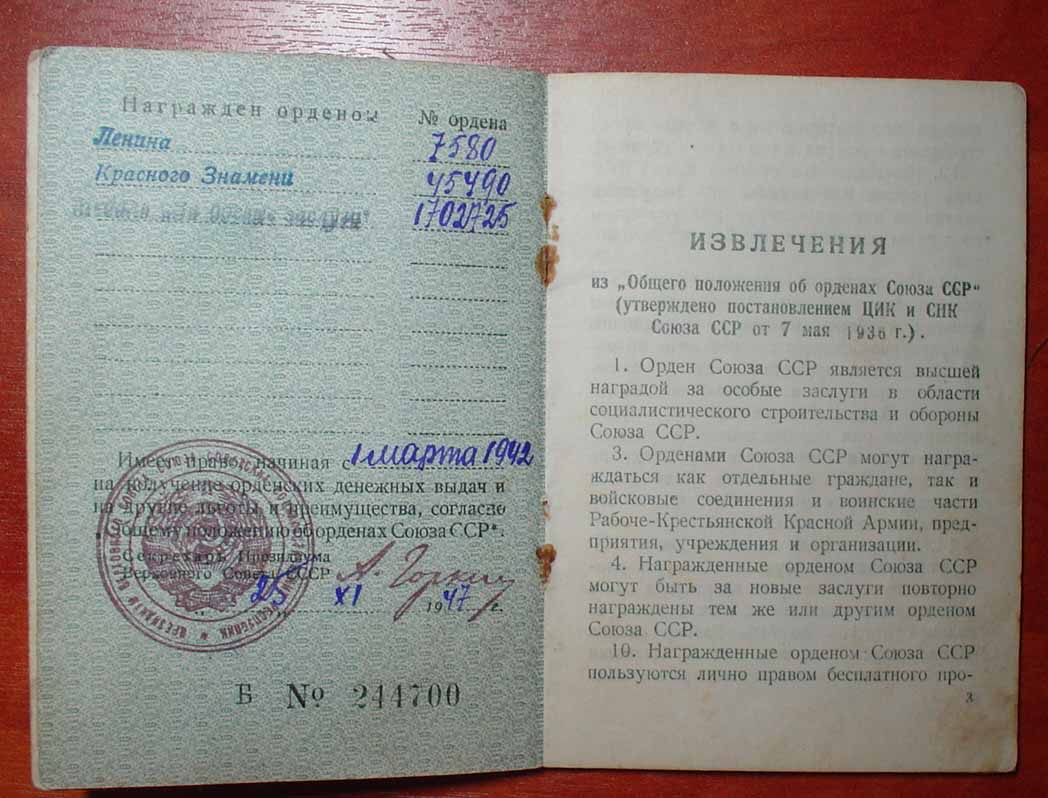 Награжден орденом
№ ордена
Ленина
7580
Красного Знамени
45490
заслуги"
1702725
Имеет право, начиная с 1 марта 1942
на получение орденских денежных выдач и
на другие льготы и преимущества, согласно
общему положению об орденах Союза ССР".
Секретарь Президиума
Верховного Совета СССР А. Горкин
25 XI 1947 г.
Б № 244700
ИЗВЛЕЧЕНИЯ
из „Общего положения об орденах Союза ССР"
(утверждено постановлением ЦИК и СНК
Союза ССР от 7 мая 1936 г.).
1. Орден Союза ССР является высшей
наградой за особые заслуги в области
социалистического строительства и обороны
Союза ССР.
3. Орденами Союза ССР могут награ-
ждаться как отдельные граждане, так и
войсковые соединения и воинские части
Рабоче-Крестьянской Красной Армии, пред-
приятия, учреждения и организации.
4. Награжденные орденом Союза ССР
могут быть за новые заслуги повторно
награждены тем же или другим орденом
Союза ССР.
10. Награжденные орденом Союза ССР
пользуются лично правом бесплатного про-
3